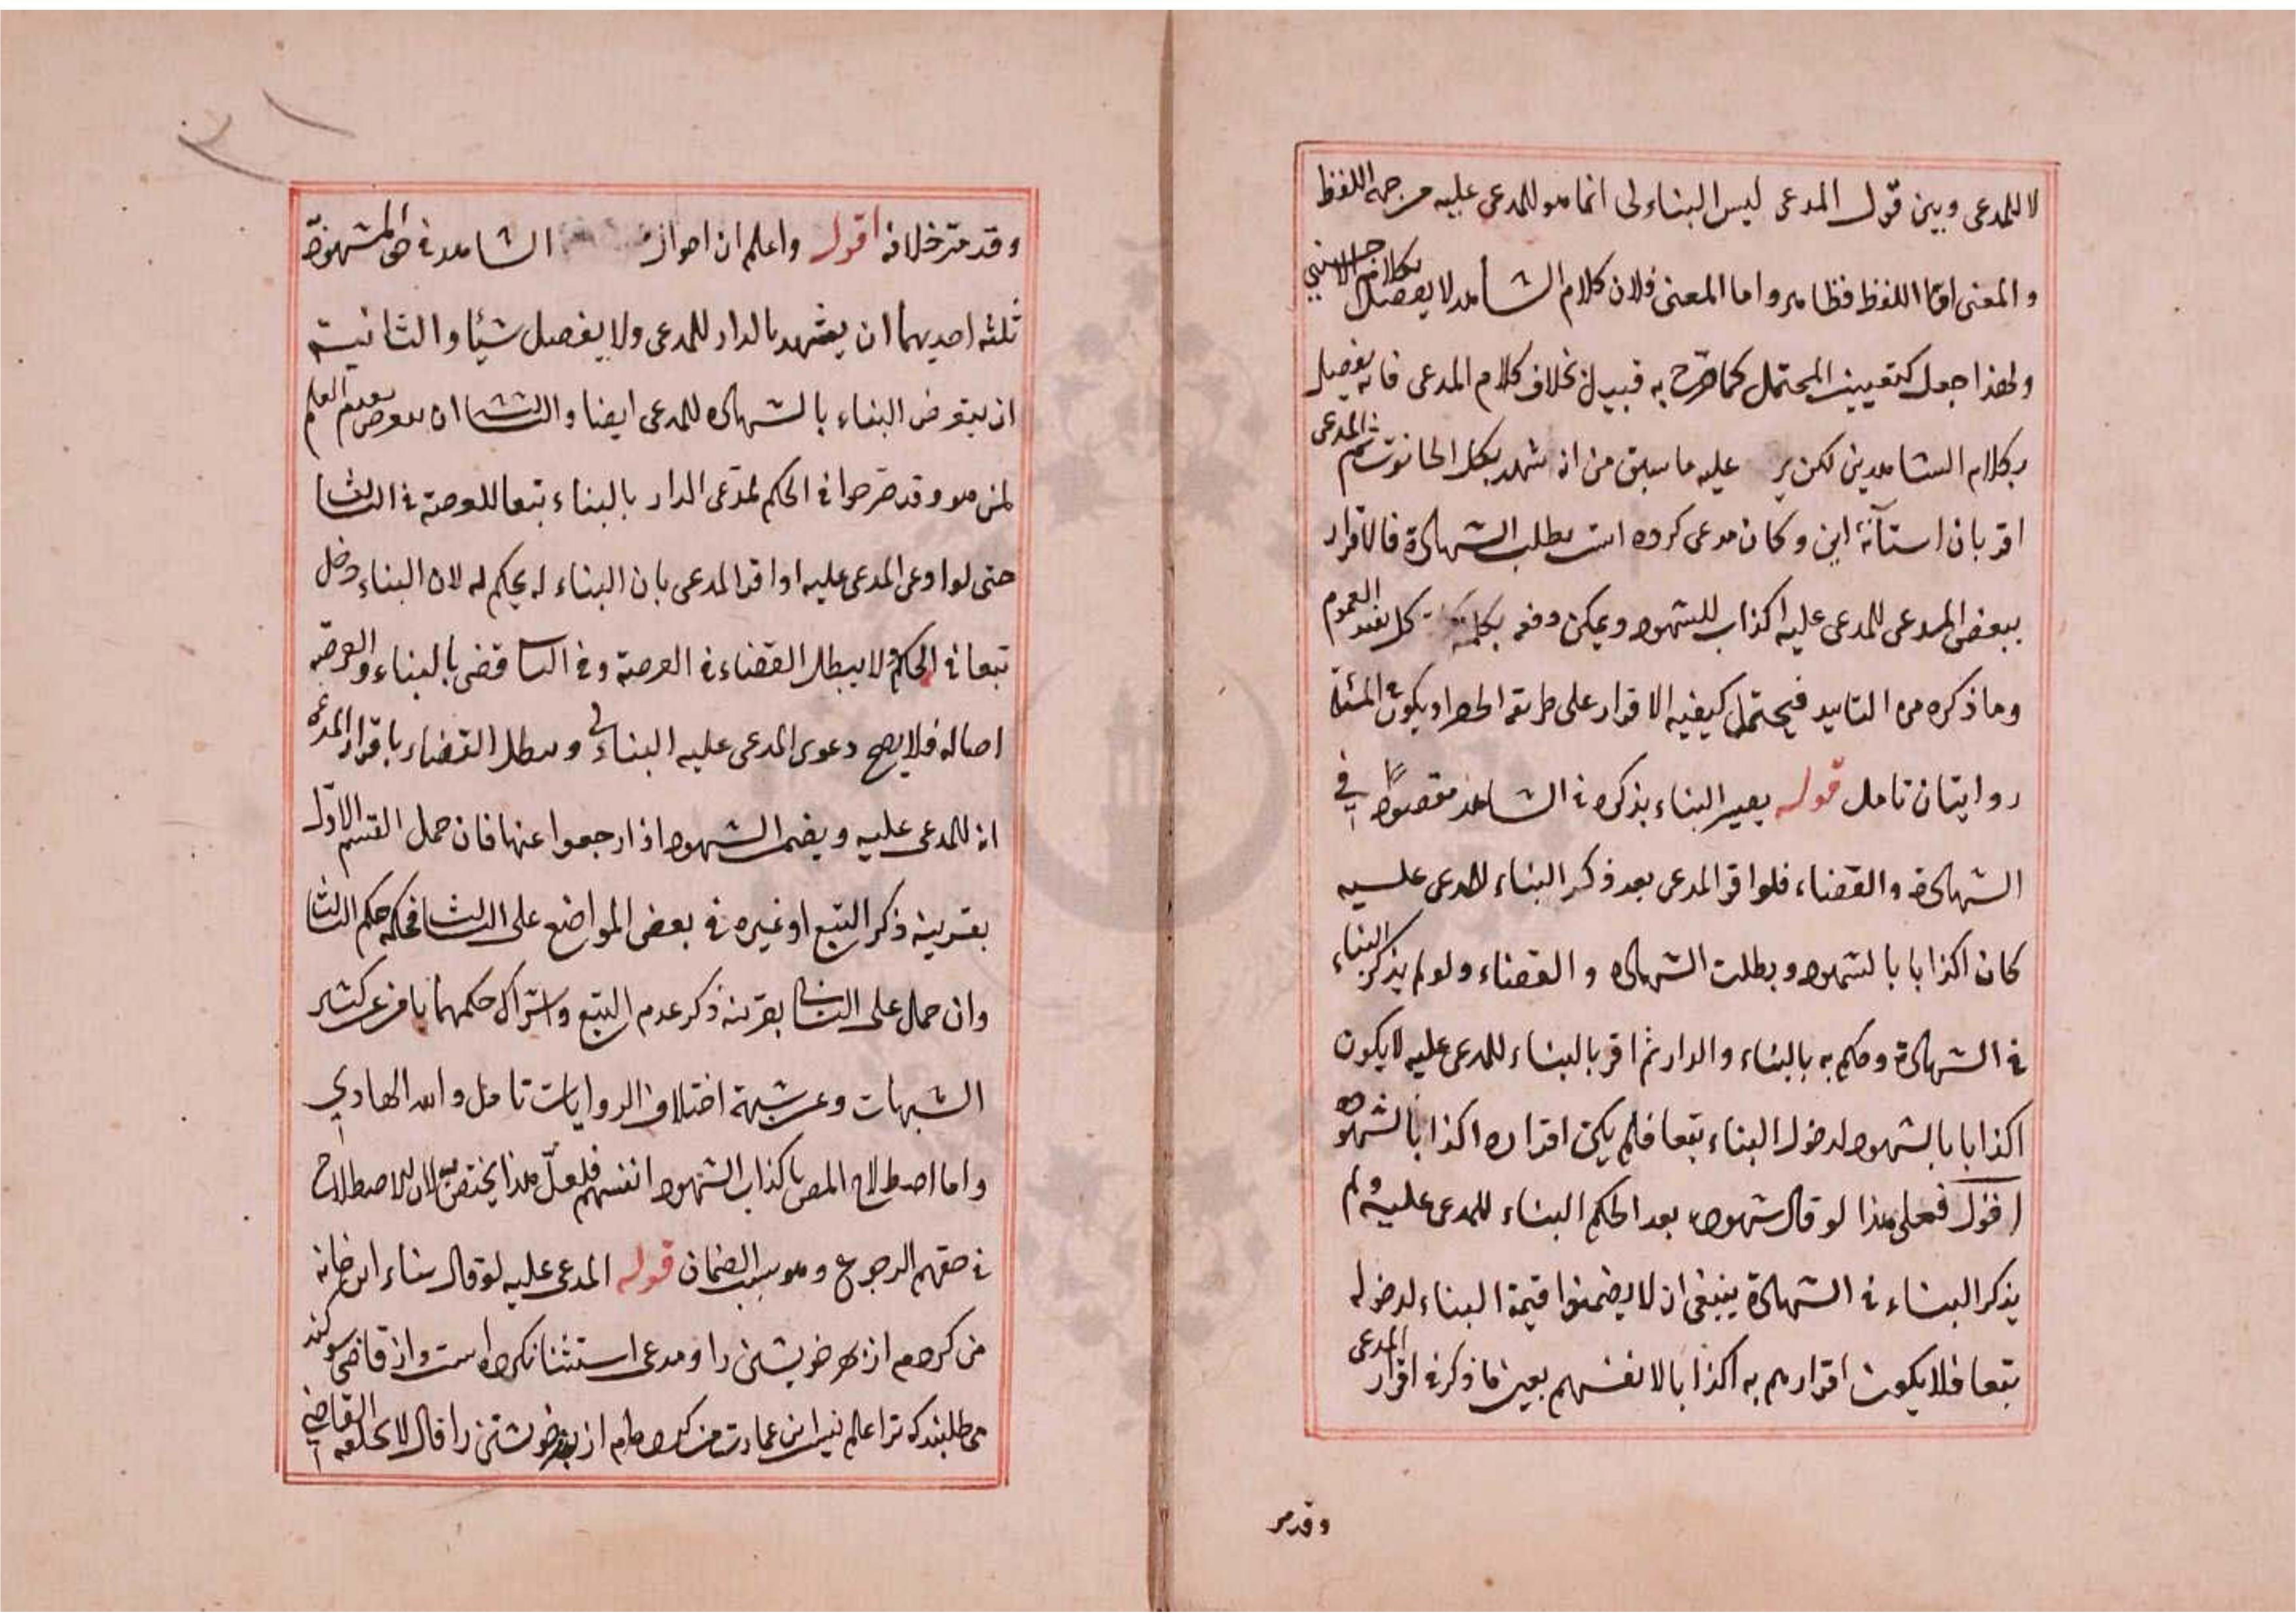 لا للمدعى وبين قول المدعى ليس البناء لى انما هو للمدعى عليه من جهة اللفظ
والمعنى اما اللفظ فظاهر واما المعنى فلان كلام الشاهد لا يفصل بكلام الاجنبي
ولهذا جعل كتعيين المحتمل كما صرح به قبيله بخلاف كلام المدعى فانه يفصل
بكلام الشاهدين لكن ير عليه ما سبق من انه شهد بكل الحانوت ثم المدعى
اقر بان استانه اين وكان مدعى كرده است بطلب الشهادة فالاقرار
ببعض المدعى للمدعى عليه اكذاب للشهود ويمكن دفعه بكلمة كل تفيد العموم
وما ذكره من التاييد فيحتمل كيفيه الاقرار على طريقه الحصر او يكون في المسئلة
روايتان تامل قوله يصير البناء بذكره في الشاهد مقصودًا في
الشهادة والقضاء فلو اقر المدعى بعد ذكر البناء للمدعى عليه
كان اكذابا بالشهود وبطلت الشهادة والقضاء ولو لم يذكر البناء
في الشهادة وحكم به بالبناء والدار ثم اقر بالبناء للمدعى عليه لا يكون
اكذابا بالشهود لدخول البناء تبعا فلم يكن اقراره اكذابا بالشهود
اقول فعلى هذا لو قال شهوده بعد الحكم البناء للمدعى عليه ولم
يذكر البناء في الشهادة ينبغى ان لا يضمنوا قيمة البناء لدخوله
تبعا فلا يكون اقرارهم به اكذابا لانفسهم بعين ما ذكر في اقرار المدعى
وقد مر
وقد مر خلافه اقول واعلم ان احوال الشاهد في حق المشهود
ثلثه احديهما ان يشهد بالدار للمدعى ولا يفصل شيئا والثانية
ان يتعرض البناء بالشهادة للمدعى ايضا والثالث ان يتعرض بعدم العلم
لمن هو وقد صرحوا في الحكم لمدعى الدار بالبناء تبعا للعرصة في الثالث
حتى لو ادعى المدعى عليه او اقر المدعى بان البناء له يحكم له لان البناء دخل
تبعا في الحكم ولا يبطل القضاء في العرصة وفي الثانى قضى بالبناء والعرصه
اصاله فلا يصح دعوى المدعى عليه البناء لى ويبطل القضاء باقرار المدعى
انه للمدعى عليه ويضمن الشهود اذا رجعوا عنها فان حمل القسم الاول
بقرينه ذكر التبع او غيره في بعض المواضع على الثالث فحكمه حكم الثالث
وان حمل على الثانى بقرينه ذكر عدم التبع واشتراك حكمهما يا من عن كثير
الشبهات وعن شبهة اختلاف الروايات تامل والله الهادي
واما اصطلاح المص باكذاب الشهود انفسهم فلعل هذا يختص به لان الاصطلاح
في حقهم الرجوع وهو سبب الضمان قوله المدعى عليه لو قال بناء اين خانه
من كرده ام از بهر خويشتن را ومدعى استثنا نكرده است واز قاضى سوكند
مى طلبند كه ترا علم نيست اين عمارت من كرده ام از بهر خويشتن را قال لا يحلفه القاضي